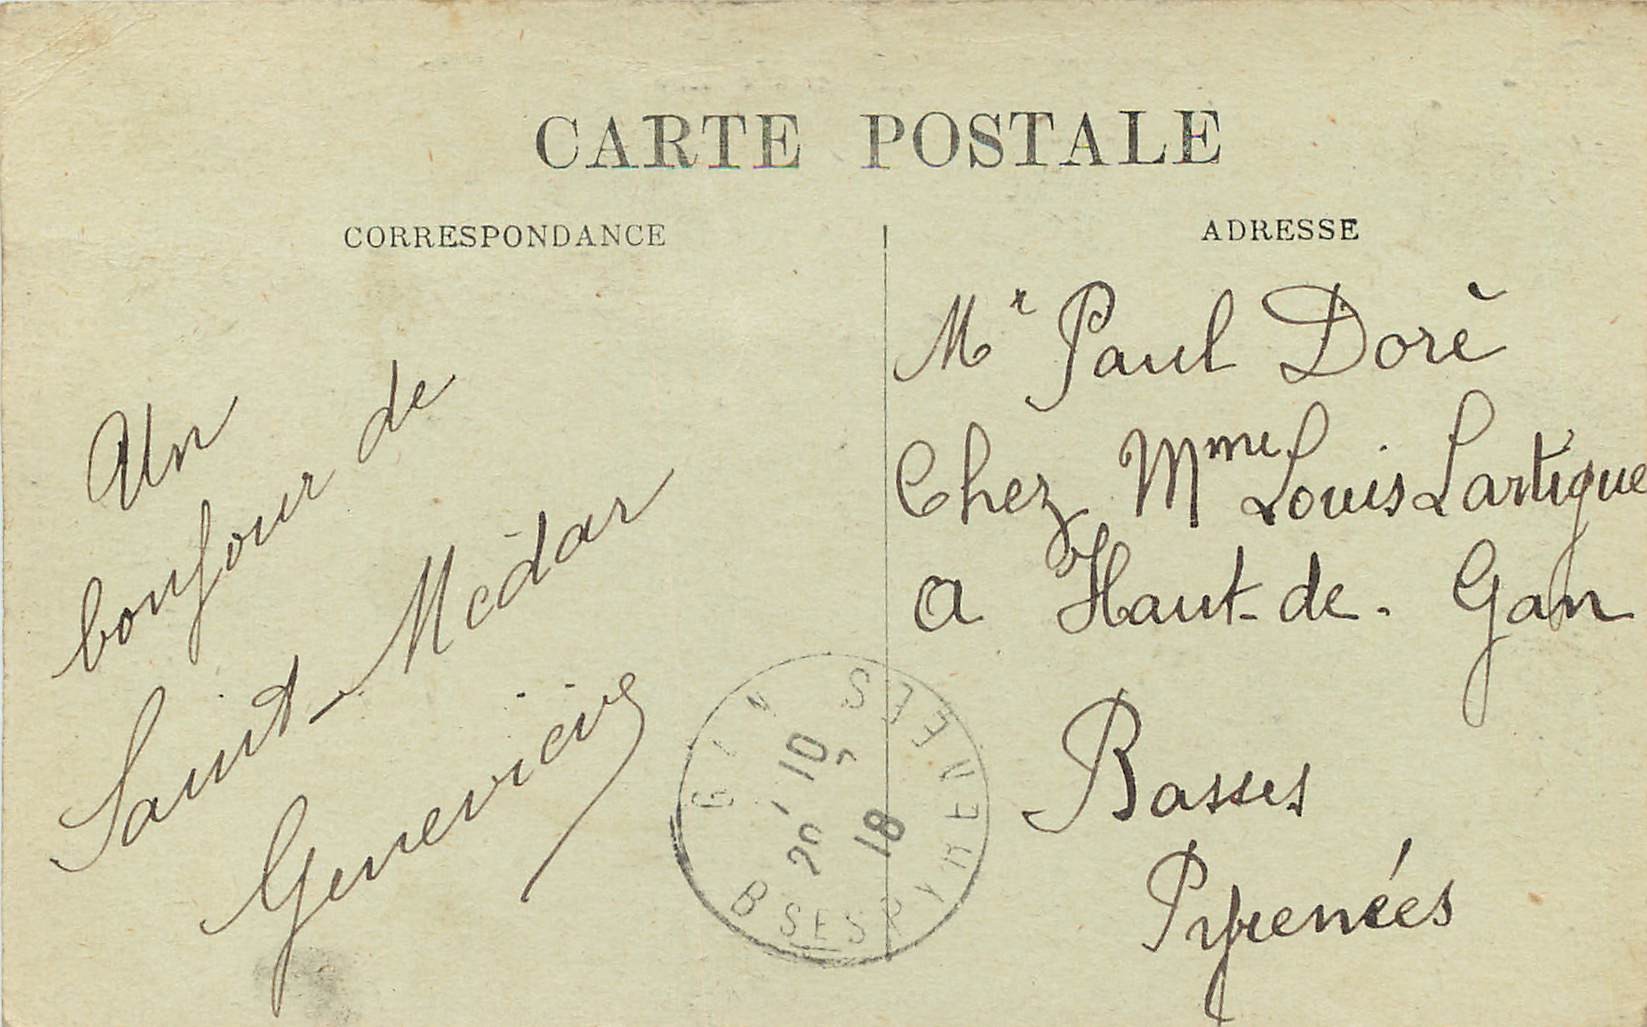 CARTE POSTALE
CORRESPONDANCE
ADRESSE
Un
bonjour de
Saint-Médar
Geneviève
Mr Paul Doré
Chez Mme Louis Lartigue
a Haut-de-Gan
Basses
Pyrénées
20 - 10
18
BSES PYRENEES